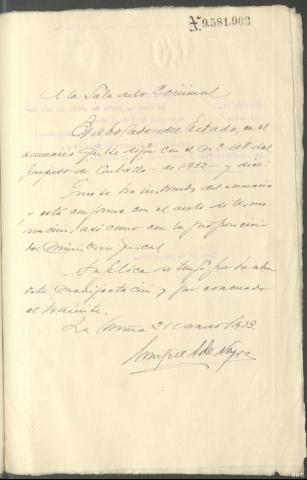 X.9.581.903
A la Sala de lo Criminal
El Abogado del Estado, en el
sumario que se sigue con el nº 108 del
Juzgado de Carballo de 1932 y dice:
Que se ha instruido del sumario
y está conforme con el auto de termi-
nación, así como con la proposición
del Ministerio fiscal
Suplica se tenga por hecha
esta manifestación y por evacuado
el trámite.
La Coruña 21 marzo 1933.